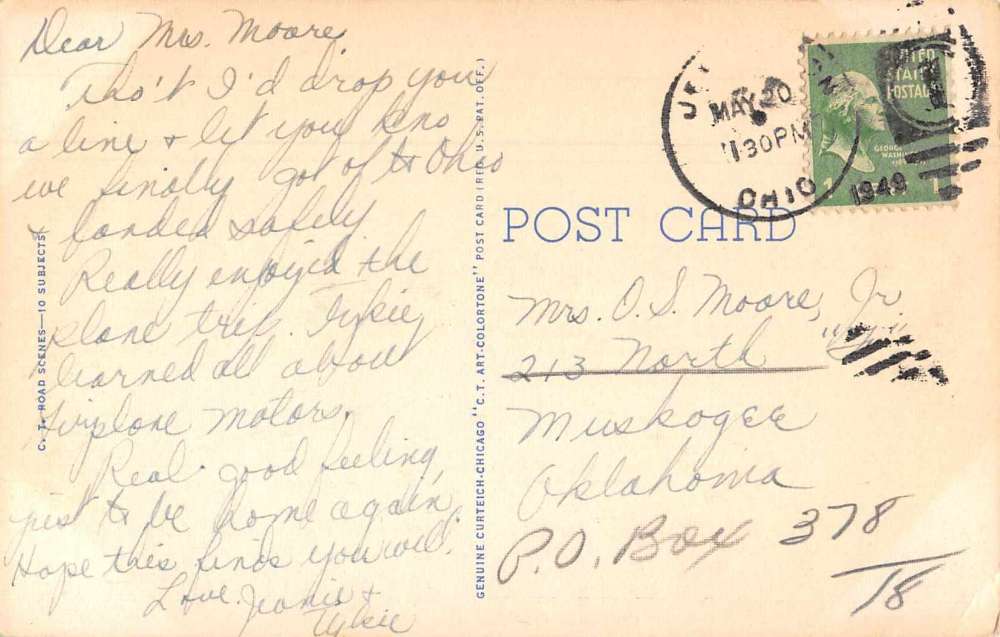 Dear Mrs. Moore,
Tho't I'd drop you
a line & let you kno
we finally got of to Ohio
& landed safely.
Really enjoyed the
plane trip. Tykie
learned all about
airplane motors.
Real good feeling
just to be home again.
Hope this finds you well.
Love. Jeanie &
Tykie
C. T. ROAD SCENES—10 SUBJECTS
GENUINE CURTEICH-CHICAGO "C.T. ART-COLORTONE" POST CARD (REG. U.S. PAT. OFF.)
MAY 20
30 PM
OHIO
1949
UNITED
STATES
POSTAGE
GEORGE
WASHINGTON
1 1
POST CARD
Mrs. O. S. Moore, Jr.
213 North
Muskogee
Oklahoma
P.O. Box 378
/18